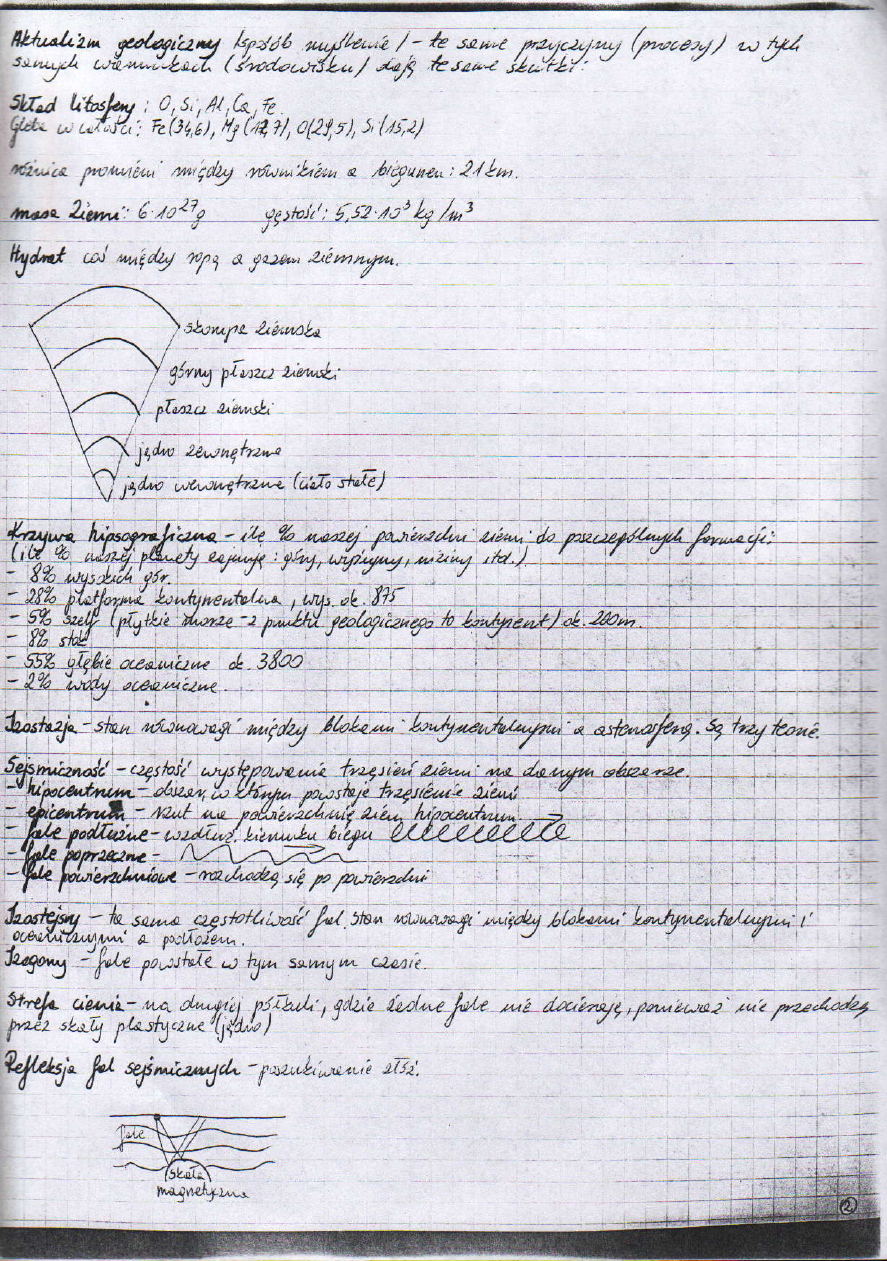 Aktualizm geologiczny /sposób myślenia/ - te same przyczyny (procesy) w tych
samych warunkach (środowisku) dają te same skutki.
Skład litosfery: O, Si, Al, Ca, Fe.
Glob w całości: Fe(34,6), Mg(12,7), O(29,5), Si(15,2)
różnica promieni między równikiem a biegunem: 21km.
masa Ziemi: 6·10²⁷g gęstość: 5,52·10³ kg/m³
Hydrat coś między ropą a gazem ziemnym.
skorupa ziemska
górny płaszcz ziemski
płaszcz ziemski
jądro zewnętrzne
jądro wewnętrzne (ciało stałe)
Krzywa hipsograficzna - ile % naszej powierzchni ziemi do poszczególnych formacji:
(ile % naszej planety zajmują: góry, wyżyny, niziny itd.)
- 8% wysokich gór.
- 28% platforma kontynentalna, wys. ok. 875
- 5% szelf (płytkie morze - z punktu geologicznego to kontynent) ok. 200m.
- 8% stok
- 55% głębie oceaniczne ok. 3800
- 2% wody oceaniczne.
Izostazja - stan równowagi między blokami kontynentalnymi a astenosferą. Są trzy teorie.
Sejsmiczność - częstość występowania trzęsień ziemi na danym obszarze.
- hipocentrum - obszar, w którym powstaje trzęsienie ziemi
- epicentrum - rzut na powierzchnię ziemi hipocentrum
- fale podłużne - wzdłuż kierunku biegu
- fale poprzeczne -
- fale powierzchniowe - rozchodzą się po powierzchni
Izostejsy - ta sama częstotliwość fal. Stan równowagi między blokami kontynentalnymi i
oceanicznymi a podłożem.
Izogony - fale powstałe w tym samym czasie.
Strefa cienia - na drugiej półkuli, gdzie żadne fale nie docierają, ponieważ nie przechodzą
przez skały plastyczne (jądro)
Refleksja fal sejsmicznych - poszukiwanie złóż.
fale
skała
magnetyczna
2